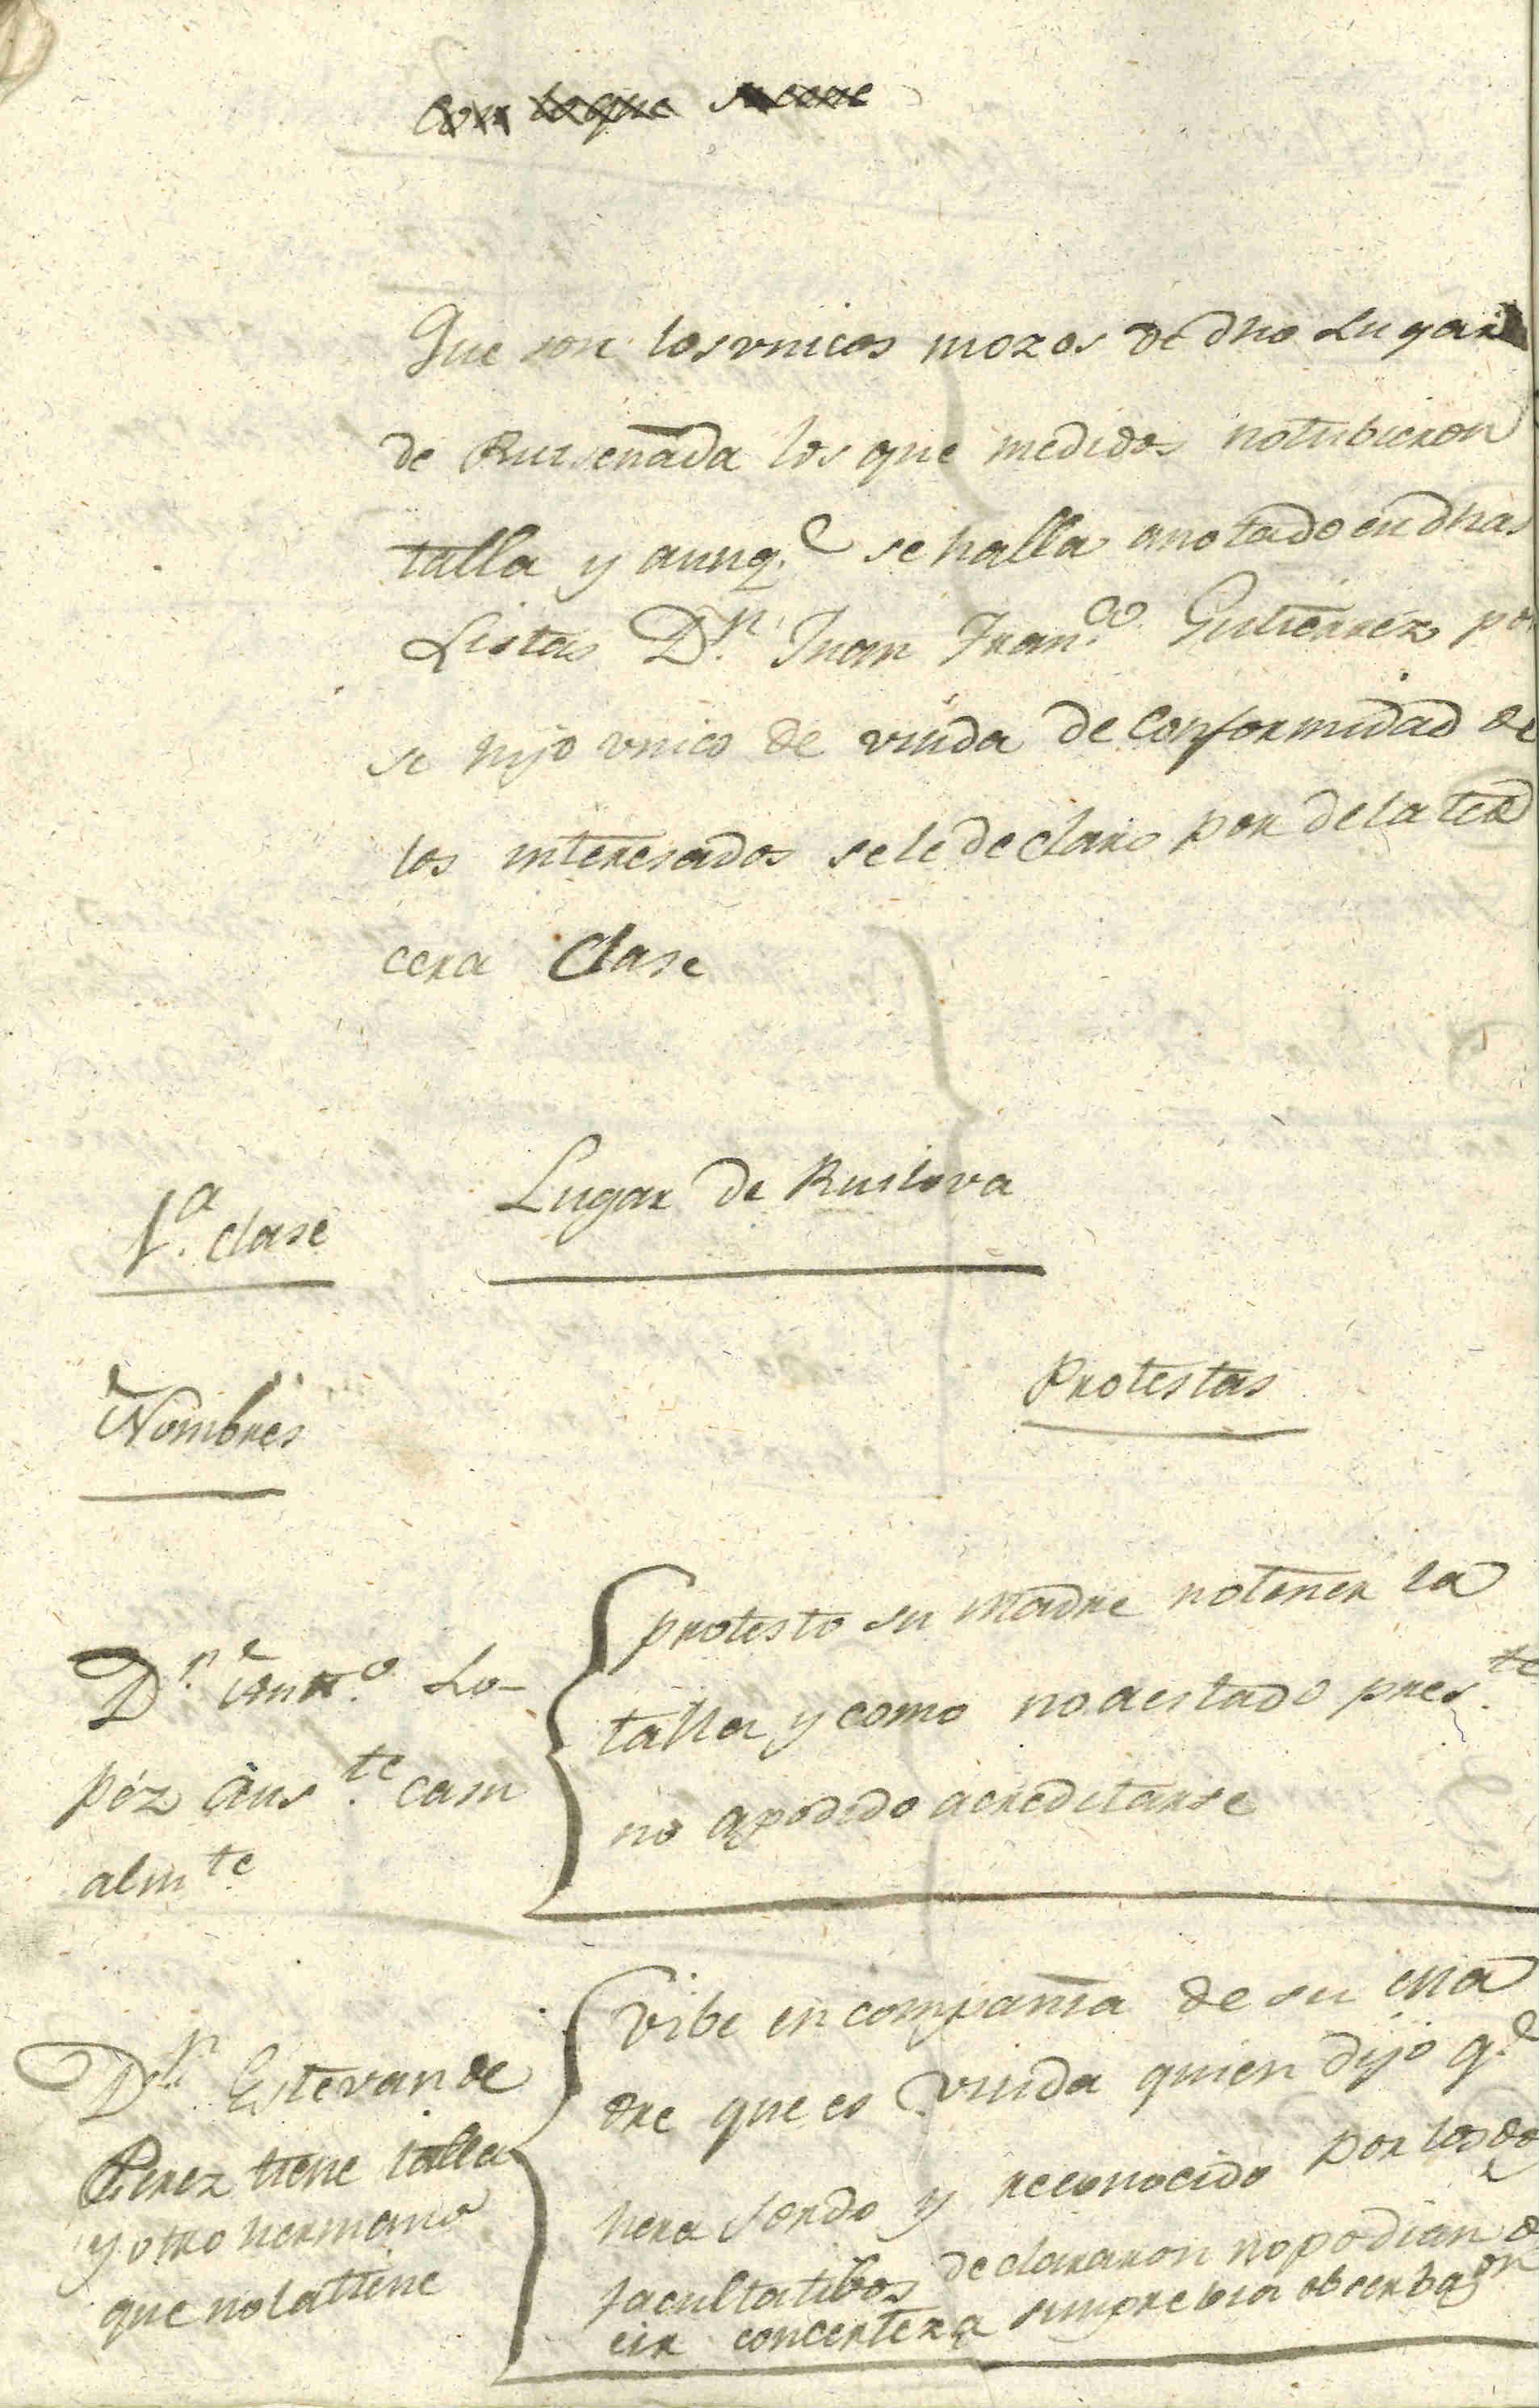 Con loque
Que son los vnicos mozos de dho Lugar
de Ruiseñada los que medidos notubieron
talla y aunq.e se halla anotado en dhas
Listas D.n Juan Fran.co Gutierrez por
se hijo vnico de viuda de Conformidad de
los interesados sele declaro por dela ter
cera Clase
1.a clase
Lugar de Ruilova
Nombres
Protestas
D.n Lo-
pez aus.te casu
alm.te
protesto su Madre notener la
talla y como no aestado pres.te
no apodido acreditarse
D.n Estevan de
Perez tiene talla
y otro hermano
que nola tiene
vibe en compañia de su Ma
dre que es viuda quien dijo q.e
hera sordo y reconocido por los dos
facultatibos declararon nopodian de
cir concerteza sinprebia obserbaz.on